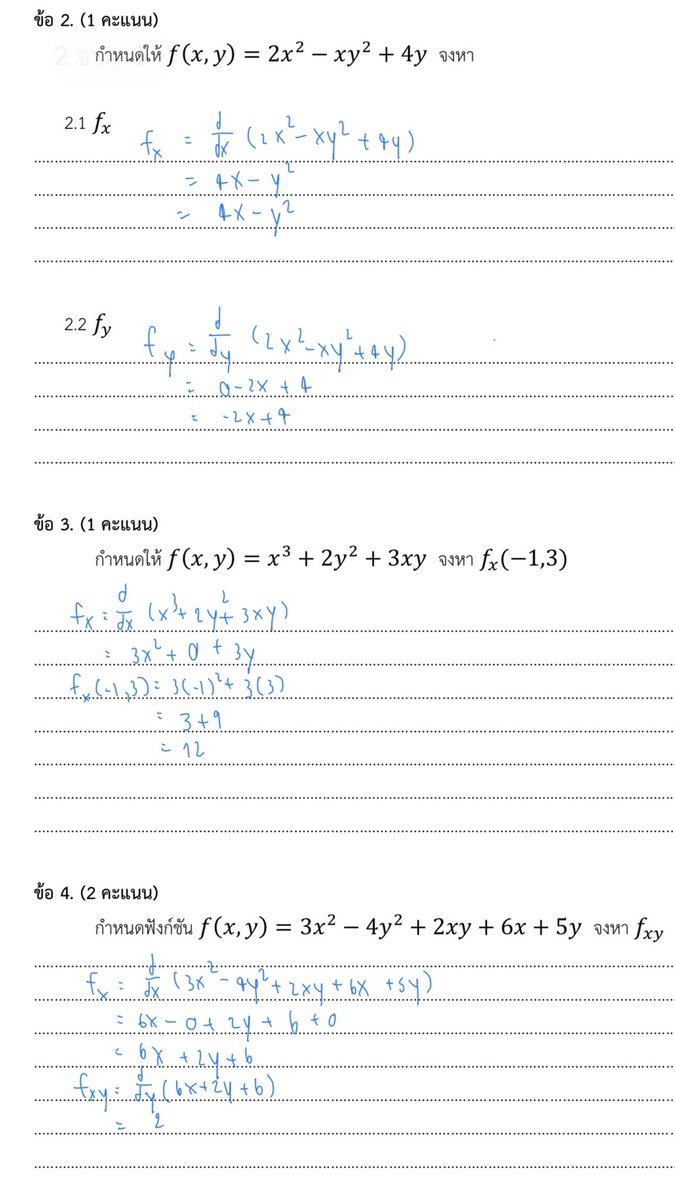 ข้อ 2. (1 คะแนน)
กำหนดให้ f(x, y) = 2x² − xy² + 4y จงหา
2.1 fₓ
fₓ = d/dx (2x² − xy² + 4y)
= 4x − y²
= 4x − y²
2.2 f_y
f_y = d/dy (2x² − xy² + 4y)
= 0 − 2x + 4
= -2x + 4
ข้อ 3. (1 คะแนน)
กำหนดให้ f(x, y) = x³ + 2y² + 3xy จงหา fₓ(−1,3)
fₓ = d/dx (x³ + 2y² + 3xy)
= 3x² + 0 + 3y
fₓ(-1,3) = 3(-1)² + 3(3)
= 3 + 9
= 12
ข้อ 4. (2 คะแนน)
กำหนดฟังก์ชัน f(x, y) = 3x² − 4y² + 2xy + 6x + 5y จงหา f_xy
fₓ = d/dx (3x² − 4y² + 2xy + 6x + 5y)
= 6x − 0 + 2y + 6 + 0
= 6x + 2y + 6
f_xy = d/dy (6x + 2y + 6)
= 2